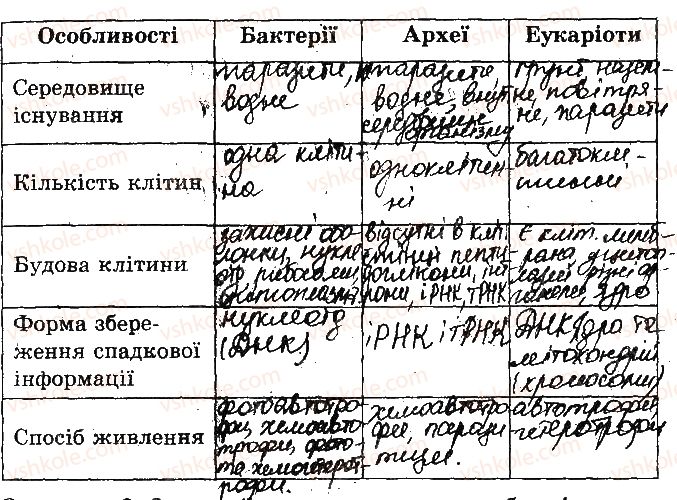 Особливості Бактерії Археї Еукаріоти
Середовище існування
паразити,
водне
паразити,
водне, внут
серед
організму
ґрунт, назем-
не, повітря-
не, паразити
Кількість клітин
одна кліти-
на
одноклітин-
ні
багатоклі-
тинні
Будова клітини
захисні обо-
лонки, нукле-
оїд, рибосоми
цитоплазма
відсутні в клі-
тинній
ірНК, тРНК
Є кліт. мемб-
рана, цитоп-
лазма, різні ор-
ганели, ядро
Форма збере-
ження спадкової
інформації
нуклеоїд
(ДНК)
іРНК і тРНК
ДНК ядра та
мітохондрій
(хромосоми)
Спосіб живлення
фотоавтотро-
фи, хемоавто-
трофи, фото-
та хемогетерот-
рофи.
хемоавтотро-
фи, парази-
тици.
автотрофи
гетеротрофи
vshkole.com